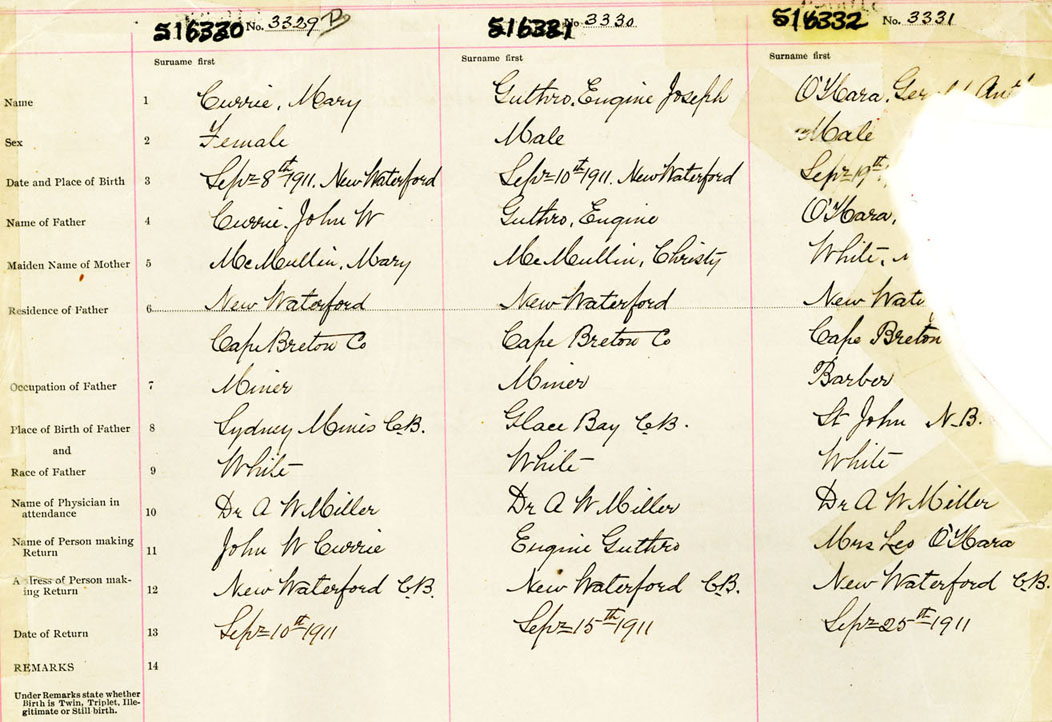 S16330 No. 3329 B S16331 No 3330 S16332 No. 3331
Surname first Surname first Surname first
Name 1 Currie, Mary Guthro, Eugine Joseph O'Hara,
Sex 2 Female Male Male
Date and Place of Birth 3 Sept 8th 1911. New Waterford Sept 10th 1911. New Waterford Sept 19th
Name of Father 4 Currie. John W Guthro, Eugine O'Hara,
Maiden Name of Mother 5 McMullin, Mary McMullin, Christy White,
Residence of Father 6 New Waterford New Waterford New
Cape Breton Co Cape Breton Co Cape Breton
Occupation of Father 7 Miner Miner Barber
Place of Birth of Father 8 Sydney Mines C.B. Glace Bay C.B. St John N.B.
and
Race of Father 9 White White White
Name of Physician in
attendance 10 Dr A W Miller Dr A W Miller Dr A W Miller
Name of Person making
Return 11 John W Currie Eugine Guthro Mrs Leo O'Hara
Address of Person mak-
ing Return 12 New Waterford C.B. New Waterford C.B. New Waterford C.B.
Date of Return 13 Sept 10th 1911 Sept 15th 1911 Sept 25th 1911
REMARKS 14
Under Remarks state whether
Birth is Twin, Triplet, Ille-
gitimate or Still birth.